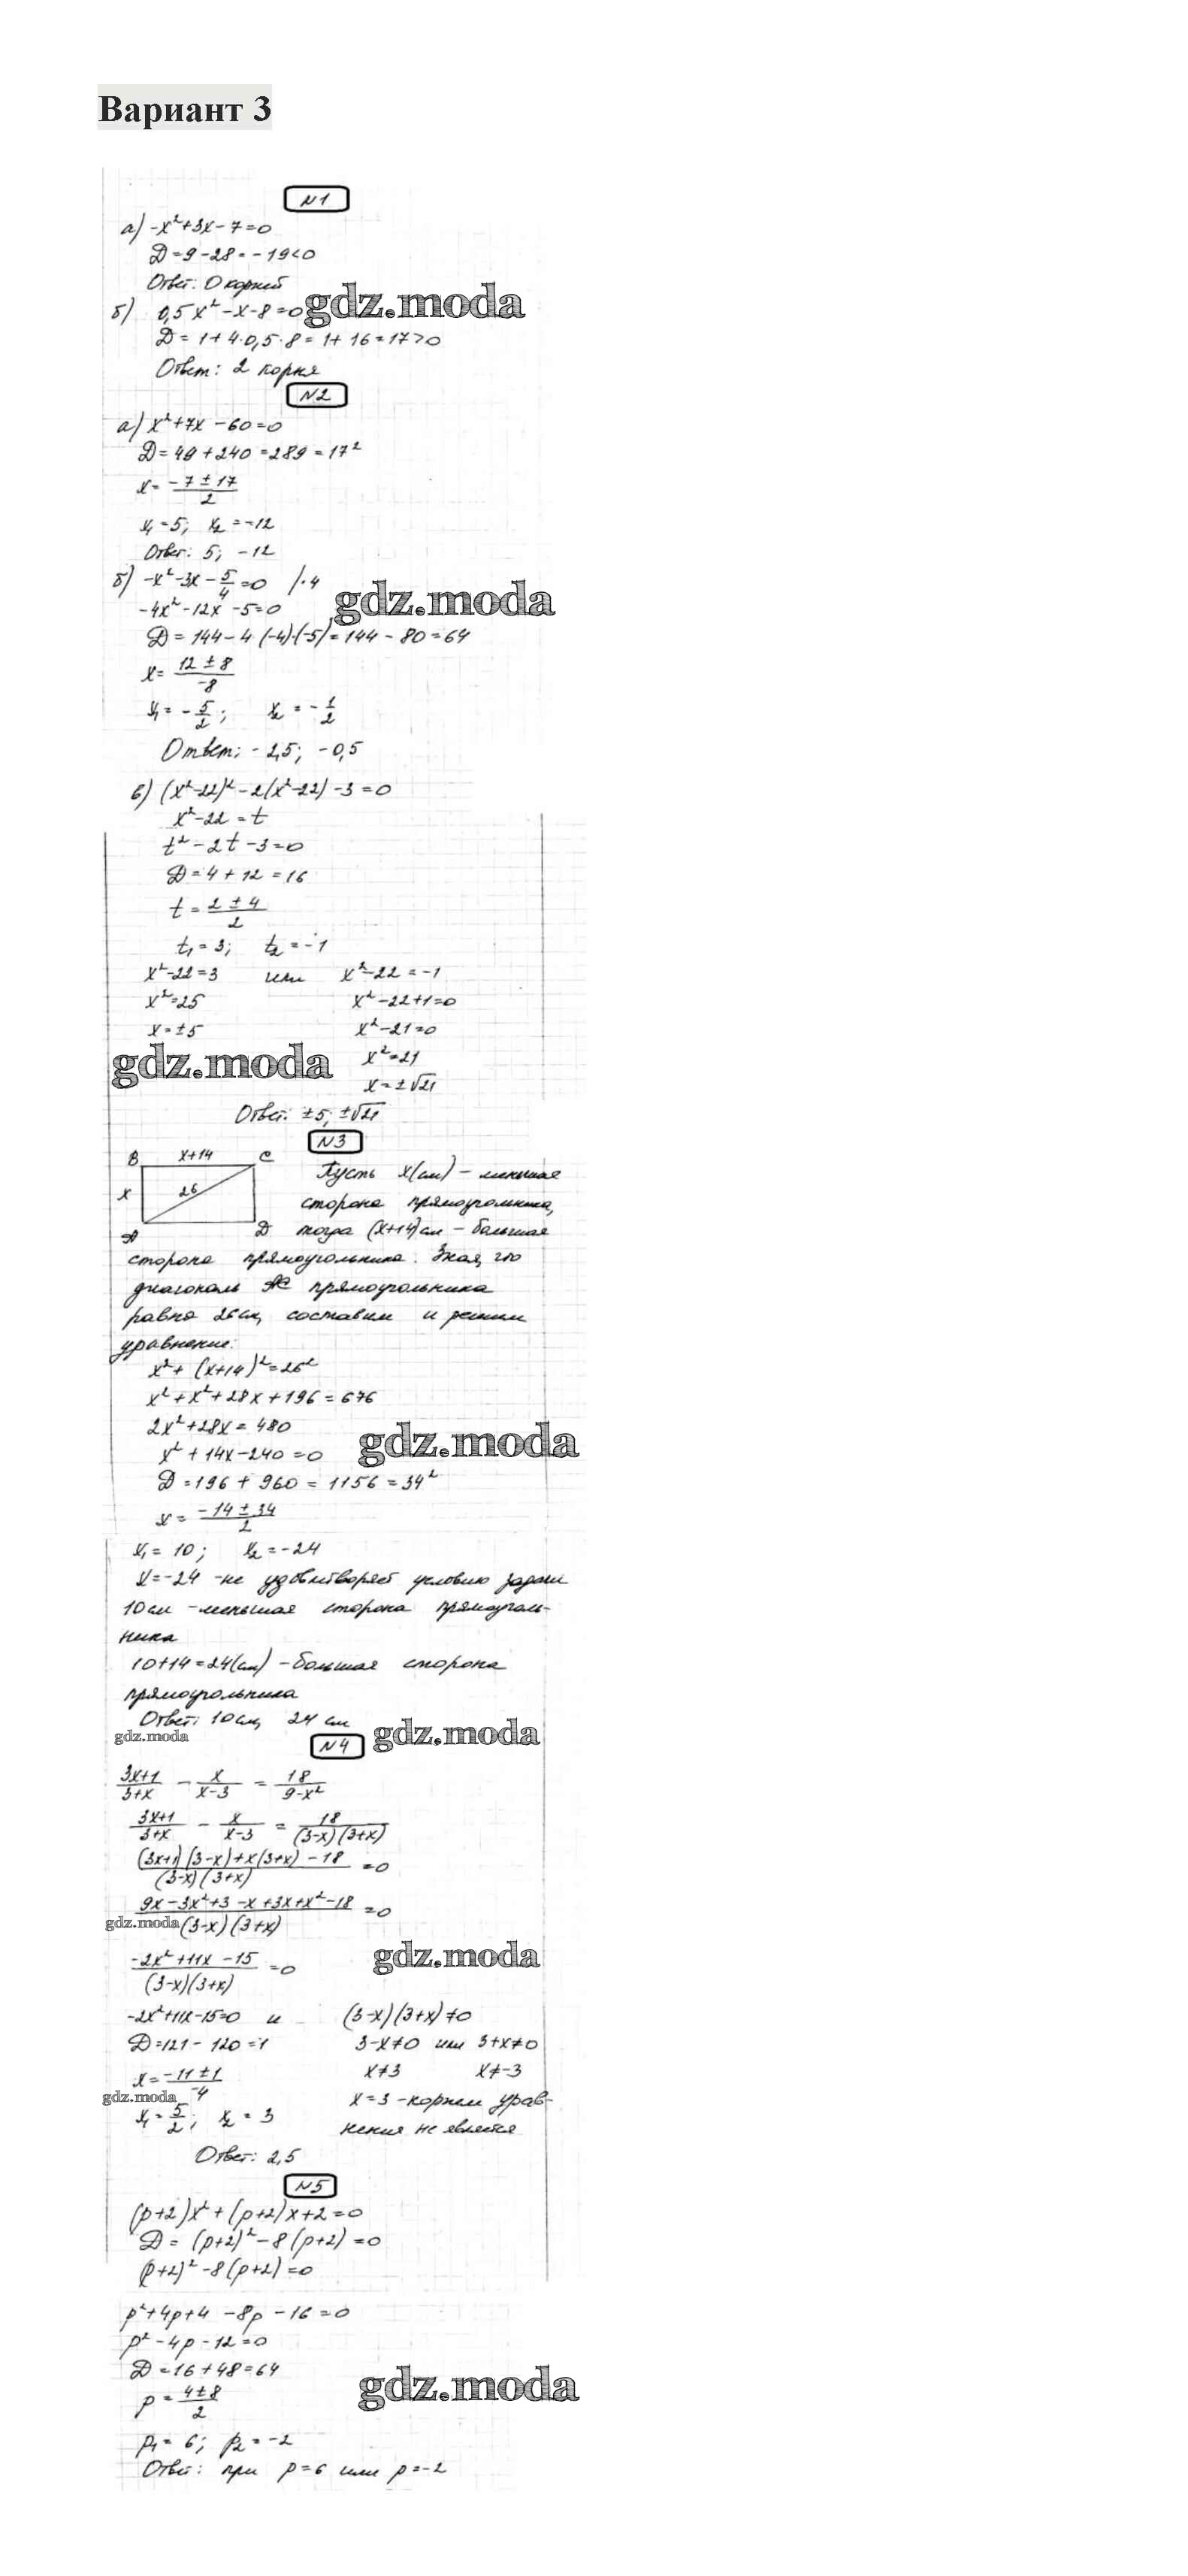 Вариант 3
N1
а) -x²+3x-7=0
D=9-28=-19<0
Ответ: 0 корней
б) 0,5x²-x-8=0
gdz.moda
D=1+4·0,5·8=1+16=17>0
Ответ: 2 корня
N2
а) x²+7x-60=0
D=49+240=289=17²
x=(-7±17)/2
x₁=5; x₂=-12
Ответ: 5; -12
б) -x²-3x-5/4=0 /·4
gdz.moda
-4x²-12x-5=0
D=144-4·(-4)·(-5)=144-80=64
x=(12±8)/-8
x₁=-5/2; x₂=-1/2
Ответ: -2,5; -0,5
в) (x²-22)²-2(x²-22)-3=0
x²-22=t
t²-2t-3=0
D=4+12=16
t=(2±4)/2
t₁=3; t₂=-1
x²-22=3 или x²-22=-1
x²=25 x²-22+1=0
x=±5 x²-21=0
gdz.moda x²=21
x=±√21
Ответ: ±5; ±√21
N3
B x+14 C
x 26
A D
Пусть x(см) - меньшая
сторона прямоугольника,
тогда (x+14)см - большая
сторона прямоугольника. Зная, что
диагональ AC прямоугольника
равна 26см, составим и решим
уравнение:
x²+(x+14)²=26²
x²+x²+28x+196=676
2x²+28x=480
x²+14x-240=0
gdz.moda
D=196+960=1156=34²
x=(-14±34)/2
x₁=10; x₂=-24
x=-24 -не удовлетворяет условию задачи
10см -меньшая сторона прямоуголь-
ника
10+14=24(см) -большая сторона
прямоугольника
Ответ: 10см, 24 см
gdz.moda
gdz.moda
N4
(3x+1)/(3+x) - x/(x-3) = 18/(9-x²)
(3x+1)/(3+x) - x/(x-3) = 18/((3-x)(3+x))
((3x+1)(3-x)+x(3+x)-18)/((3-x)(3+x))=0
(9x-3x²+3-x+3x+x²-18)/((3-x)(3+x))=0
gdz.moda
gdz.moda
(-2x²+11x-15)/((3-x)(3+x))=0
-2x²+11x-15=0 и (3-x)(3+x)≠0
D=121-120=1 3-x≠0 или 3+x≠0
x=(-11±1)/-4 x≠3 x≠-3
gdz.moda
x₁=5/2; x₂=3 x=3 -корнем урав-
нения не является
Ответ: 2,5
N5
(p+2)x²+(p+2)x+2=0
D=(p+2)²-8(p+2)=0
(p+2)²-8(p+2)=0
p²+4p+4-8p-16=0
p²-4p-12=0
D=16+48=64
gdz.moda
p=(4±8)/2
p₁=6; p₂=-2
Ответ: при p=6 или p=-2